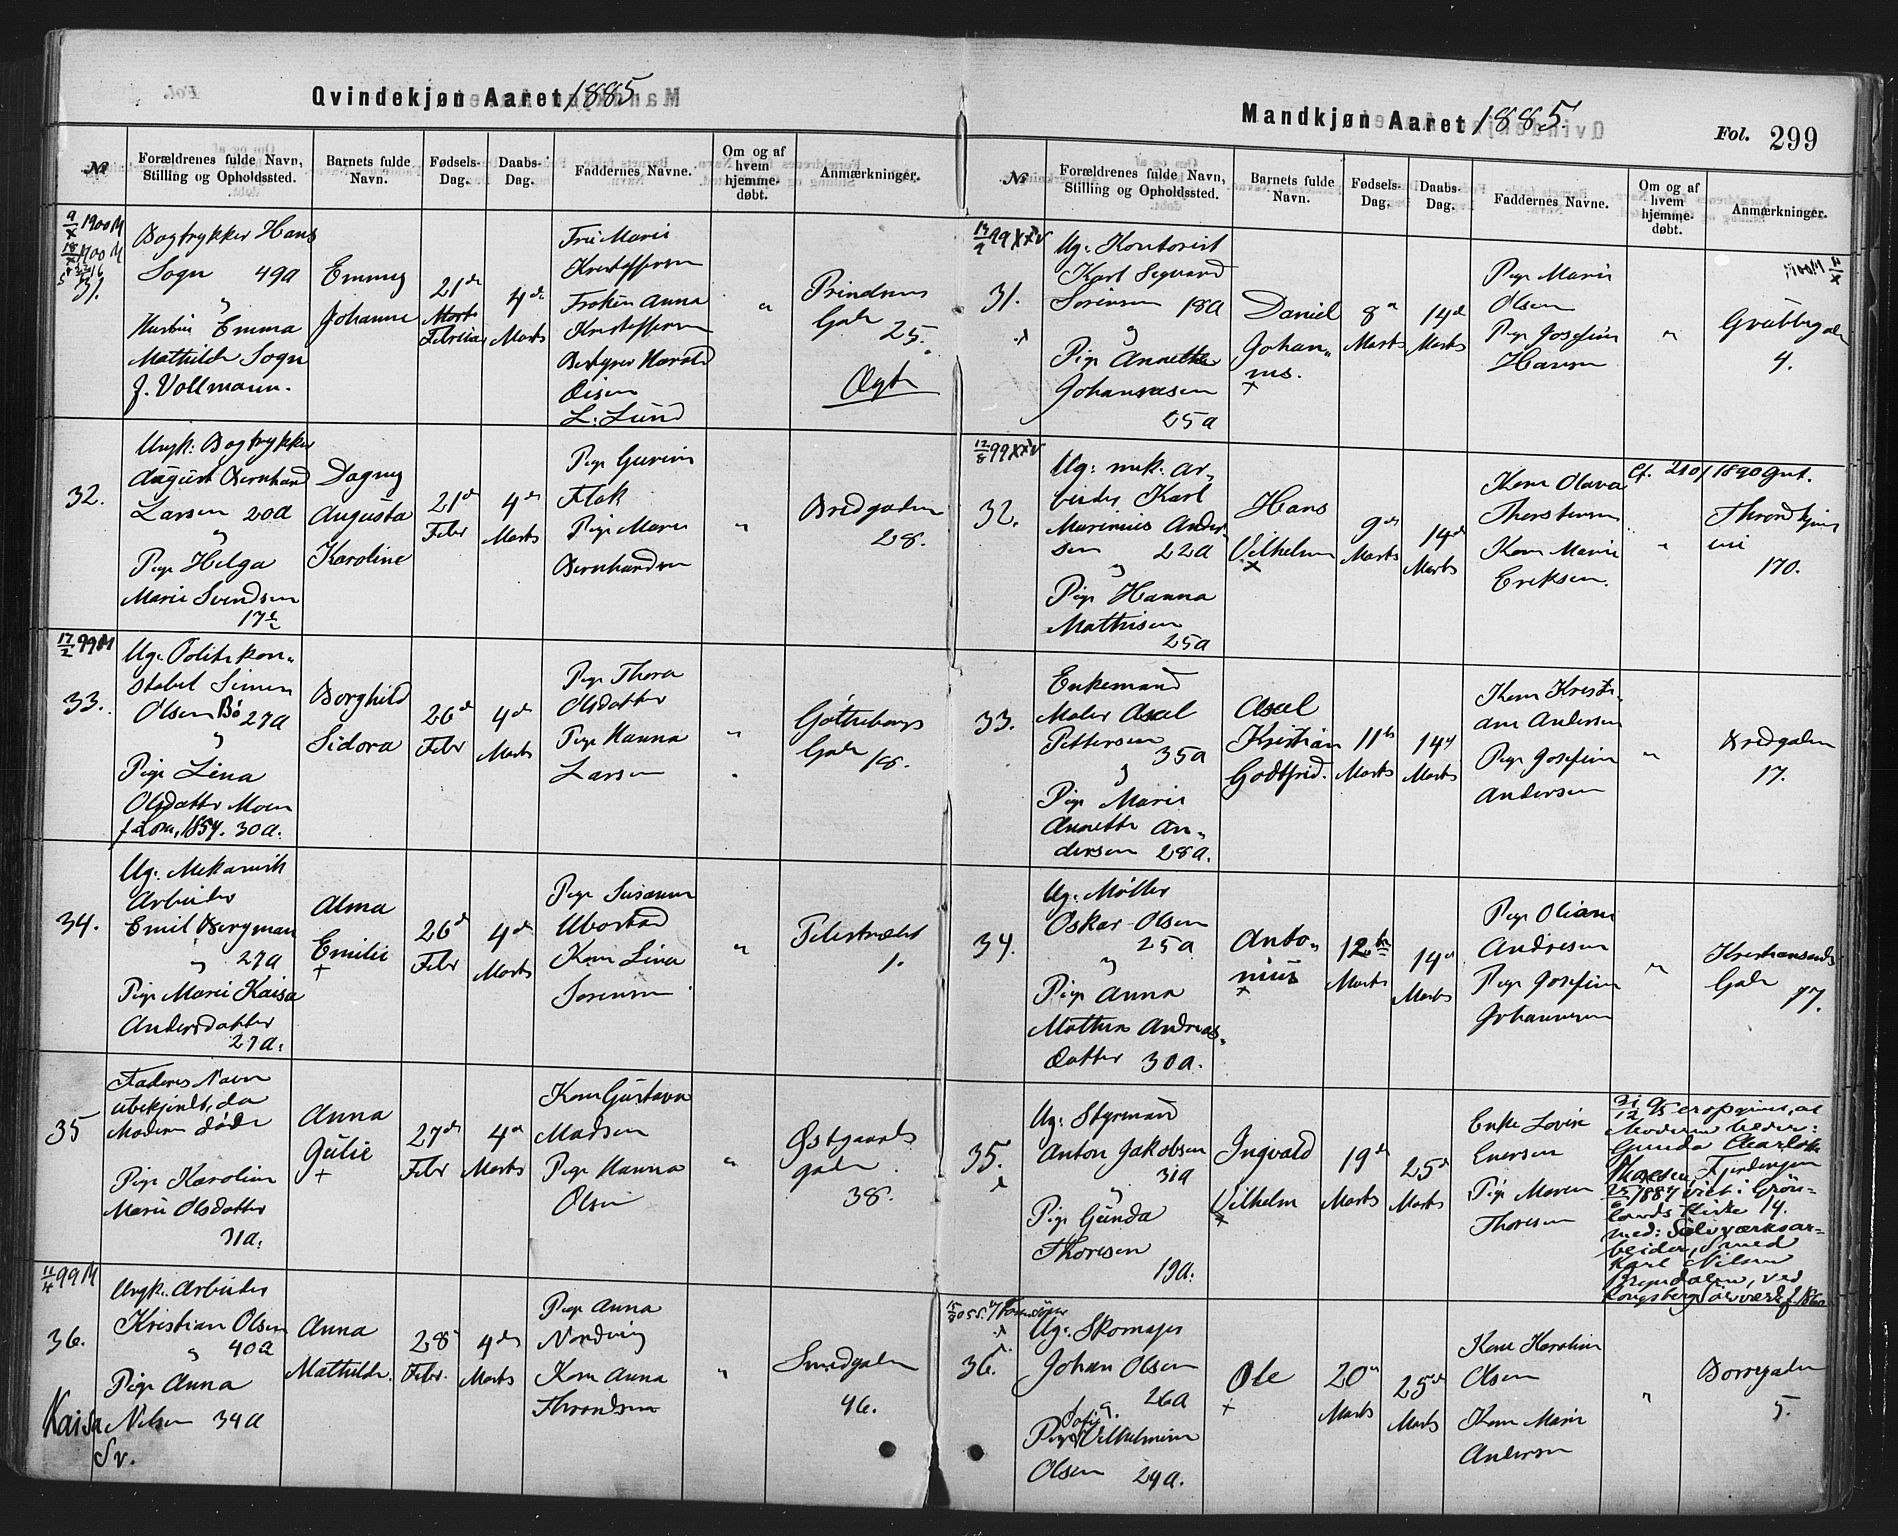 Qvindekjøn Aaret 1885
№
Forældrenes fulde Navn,
Stilling og Opholdssted.
Barnets fulde
Navn.
Fødsels-
Dag.
Daabs-
Dag.
Faddernes Navne.
Om og af
hvem
hjemme-
døbt.
Anmærkninger.
31.
Bogtrykker Hans
Sogn 49a
Emma
Mathilde Sogn
f. Vollmann.
Emmy
Johanne
21de
Februar
4de
Marts
Frøken Anna
L. Lund
"
Gade
25.
Ægte
32.
Ungk: Bogtrykker
August Bernhard
Larsen 20a
Pige Helga
Marie Svendsen
17½
Dagny
Augusta
Karoline
21de
Febr
4de
Marts
Pige Marie
"
Bredgaden
28.
17/2 99M
33.
Ug: Politikon-
stabel Simen
Olsen Bø 27a
Pige Lina
Olsdatter Moen
f. Lom, 1854. 30a.
Borghild
Sidora
26de
Febr
4de
Marts
Pige Thora
Olsdatter
Pige Hanna
Larsen
"
Gøtheborgs
Gade 18.
34.
Ug: Mekanisk
Arbeider
Emil Bergman
27a
Pige Marie Kaisa
Andersdatter
27a.
Alma
Emilie
+
26de
Febr
4de
Marts
Kone Lina
Sørensen
"
1.
35
Faderens Navn
ubekjendt, da
Moderen døde
Pige Karoline
Marie Olsdatter
31a.
Anna
Julie
+
27de
Febr
4de
Marts
Kone Gustava
Madsen
Pige Hanna
Olsen
"
Østgaards
gade
38.
11/4 99M
36.
Ungk: Arbeider
Kristian Olsen
40a
Pige Anna
Kaisa Nilsen 34a
Sv.
Anna
Mathilde.
28
Febr.
4de
Marts
Pige Anna
Nordvig
Kone Anna
Throndsen
"
Smedgaden
46.
Mandkjøn Aaret 1885.
Fol. 299
№
Forældrenes fulde Navn,
Stilling og Opholdssted.
Barnets fulde
Navn.
Fødsels-
Dag.
Daabs-
Dag.
Faddernes Navne.
Om og af
hvem
hjemme-
døbt.
Anmærkninger.
31.
Ug: Kontorist
Karl Sigvard
Sørensen 18a
Pige Annethe
Johannesen
25a
Daniel
Johan-
nes.
+
8de
Marts
14de
Marts
Pige Marie
Olsen
Pige Josefine
Hansen
"
Grubbegaden
4.
32.
Ug: mek. Ar-
beider, Karl
Marinius Ander-
sen 22a
Pige Hanna
Mathisen
25a
Hans
Vilhelm
+
9de
Marts
14de
Marts
Kone Olava
Thorstensen
Kone Marie
Eriksen.
"
Cf. 210/1890 Gut.
Throndhjems
vei
170.
33.
Enkemand
Maler Axel
Pettersen
35a
Pige Marie
Annette An-
dersen 28a.
Axel
Kristian
Godtfrid.
11te
Marts
14de
Marts
Kone Kristi-
ane Andersen
Pige Josefine
Andersen
"
Bredgaden
17.
34.
Ug: Møller
Oskar Olsen
25a
Pige Anna
Mathea Andreas-
datter 30a.
Anto-
nius
+
12te
Marts
14de
Marts
Pige Oliane
Andresen
Pige Josefine
Johannesen
"
Kristiansunds
Gade
77.
35.
Ug: Styrmand
Anton Jakobsen
31a
Pige Gunda
Thoresen
19a.
Ingvald
Vilhelm
+
19de
Marts
25de
Marts
Enke Lovise
Pige Maren
Thoresen
31/12 95 er opgivet, at
Moderen heder:
Gunda Charlotte
viet i Grøn-
lands Kirke
med: Sølvværksar-
beider, Smed
Karl Nilsen
36.
Ug: Skomager
Johan Olsen
26a
Sofie
Pige Vilhelmine
Olsen 24a.
Ole
+
20de
Marts
25de
Marts
Kone Karoline
Olsen
Kone Marie
Andersen
"
Borregaden
5.